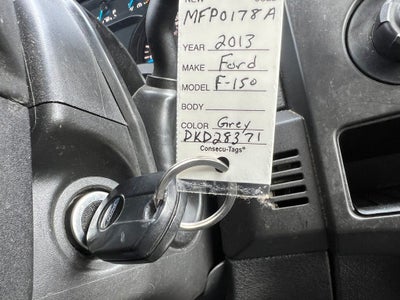 MFP0178A
YEAR 2013
MAKE Ford
MODEL F-150
BODY
COLOR Grey
DKD28371
Consecu-Tags®